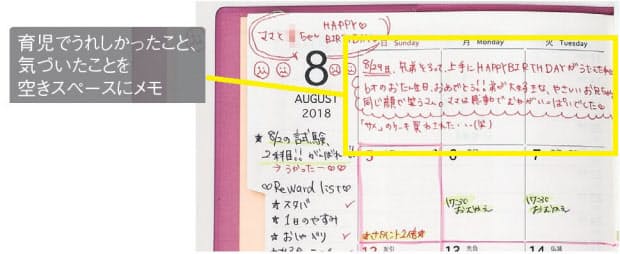 育児でうれしかったこと、
気づいたことを
空きスペースにメモ
HAPPY♡
ママと
BIRTHDAY
8
AUGUST
2018
日 Sunday
月 Monday
火 Tuesday
8/29日、兄弟そろって、上手に HAPPY BIRTHDAYが
6才のお誕生日、おめでとう!! 弟が大好きな、やさしいお兄ちゃん
同じ顔で笑う2人。ママは感動でむねがいっぱいでした
「サメ」のケーキ 買わされた・・・(笑)
★8/2の試験、
2科目!! がんばれ
→うかったー
♡Reward list♡
★スタバ ✓
★1日のやすみ
★おしゃべり ✓
5
6
7
17:30
おむかえ
17:30
おむかえ
★ポイント2倍★
12
13 先負
14 仏滅